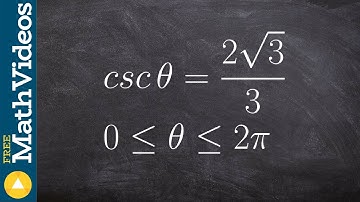 FREE
MathVideos
csc θ = 2√3/3
0 ≤ θ ≤ 2π